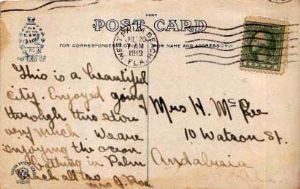 POST CARD
FOR CORRESPONDENCE
FOR NAME AND ADDRESS
WEST PALM BEACH
JUL 20
7-AM
1919
FLA.
This is a beautiful
city. Enjoyed going
through this store
very much. We are
enjoying the ocean
bathing in Palm
Beach also
Mrs H. McRee
10 Watson St.
Andalusia